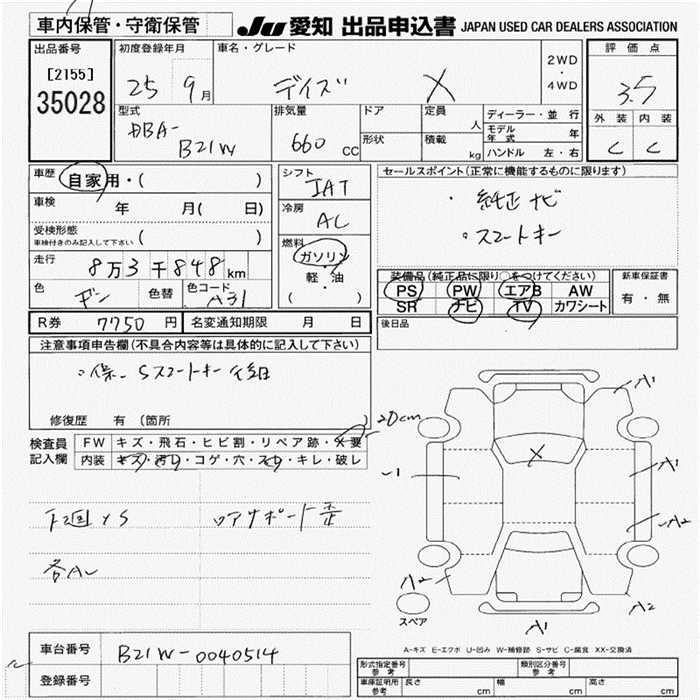 車内保管・守衛保管
JU 愛知 出品申込書 JAPAN USED CAR DEALERS ASSOCIATION
出品番号
[2155]
35028
初度登録年月
25 9月
車名・グレード
デイズ X
2WD
・
4WD
評価点
3.5
外装 内装
C C
型式
DBA-
B21W
排気量
660 CC
ドア
形状
定員
人
積載
kg
ディーラー・並行
モデル年式 年
ハンドル 左・右
車歴
自家用・( )
車検
年 月( 日)
受検形態
車検付きのみ記入して下さい ( )
走行
8万3千848km
色
色替
色コード
シフト
IAT
冷房
AC
燃料
ガソリン
軽・油
( )
セールスポイント(正常に機能するものに限ります)
・純正ナビ
・スマートキー
装備品(純正品に限り○をつけてください)
PS PW エアB AW
SR ナビ TV カワシート
新車保証書
有・無
後日品
R券 7750円 名変通知期限 月 日
注意事項申告欄(不具合内容等は具体的に記入して下さい)
修復歴 有 (箇所 )
検査員
記入欄
FW キズ・飛石・ヒビ割・リペア跡・X要
内装 キズ・汚れ・コゲ・穴・スレ・キレ・破レ
20cm
A1
X
A1
A2
A2
A2
A1
スペア
A-キズ E-エクボ U-凹み W-補修跡 S-サビ C-腐食 XX-交換済
車台番号 B21W-0040514
登録番号
形式指定番号
参考
類別区分番号
参考
車庫証明用
参考
長さ cm 幅 cm 高さ cm